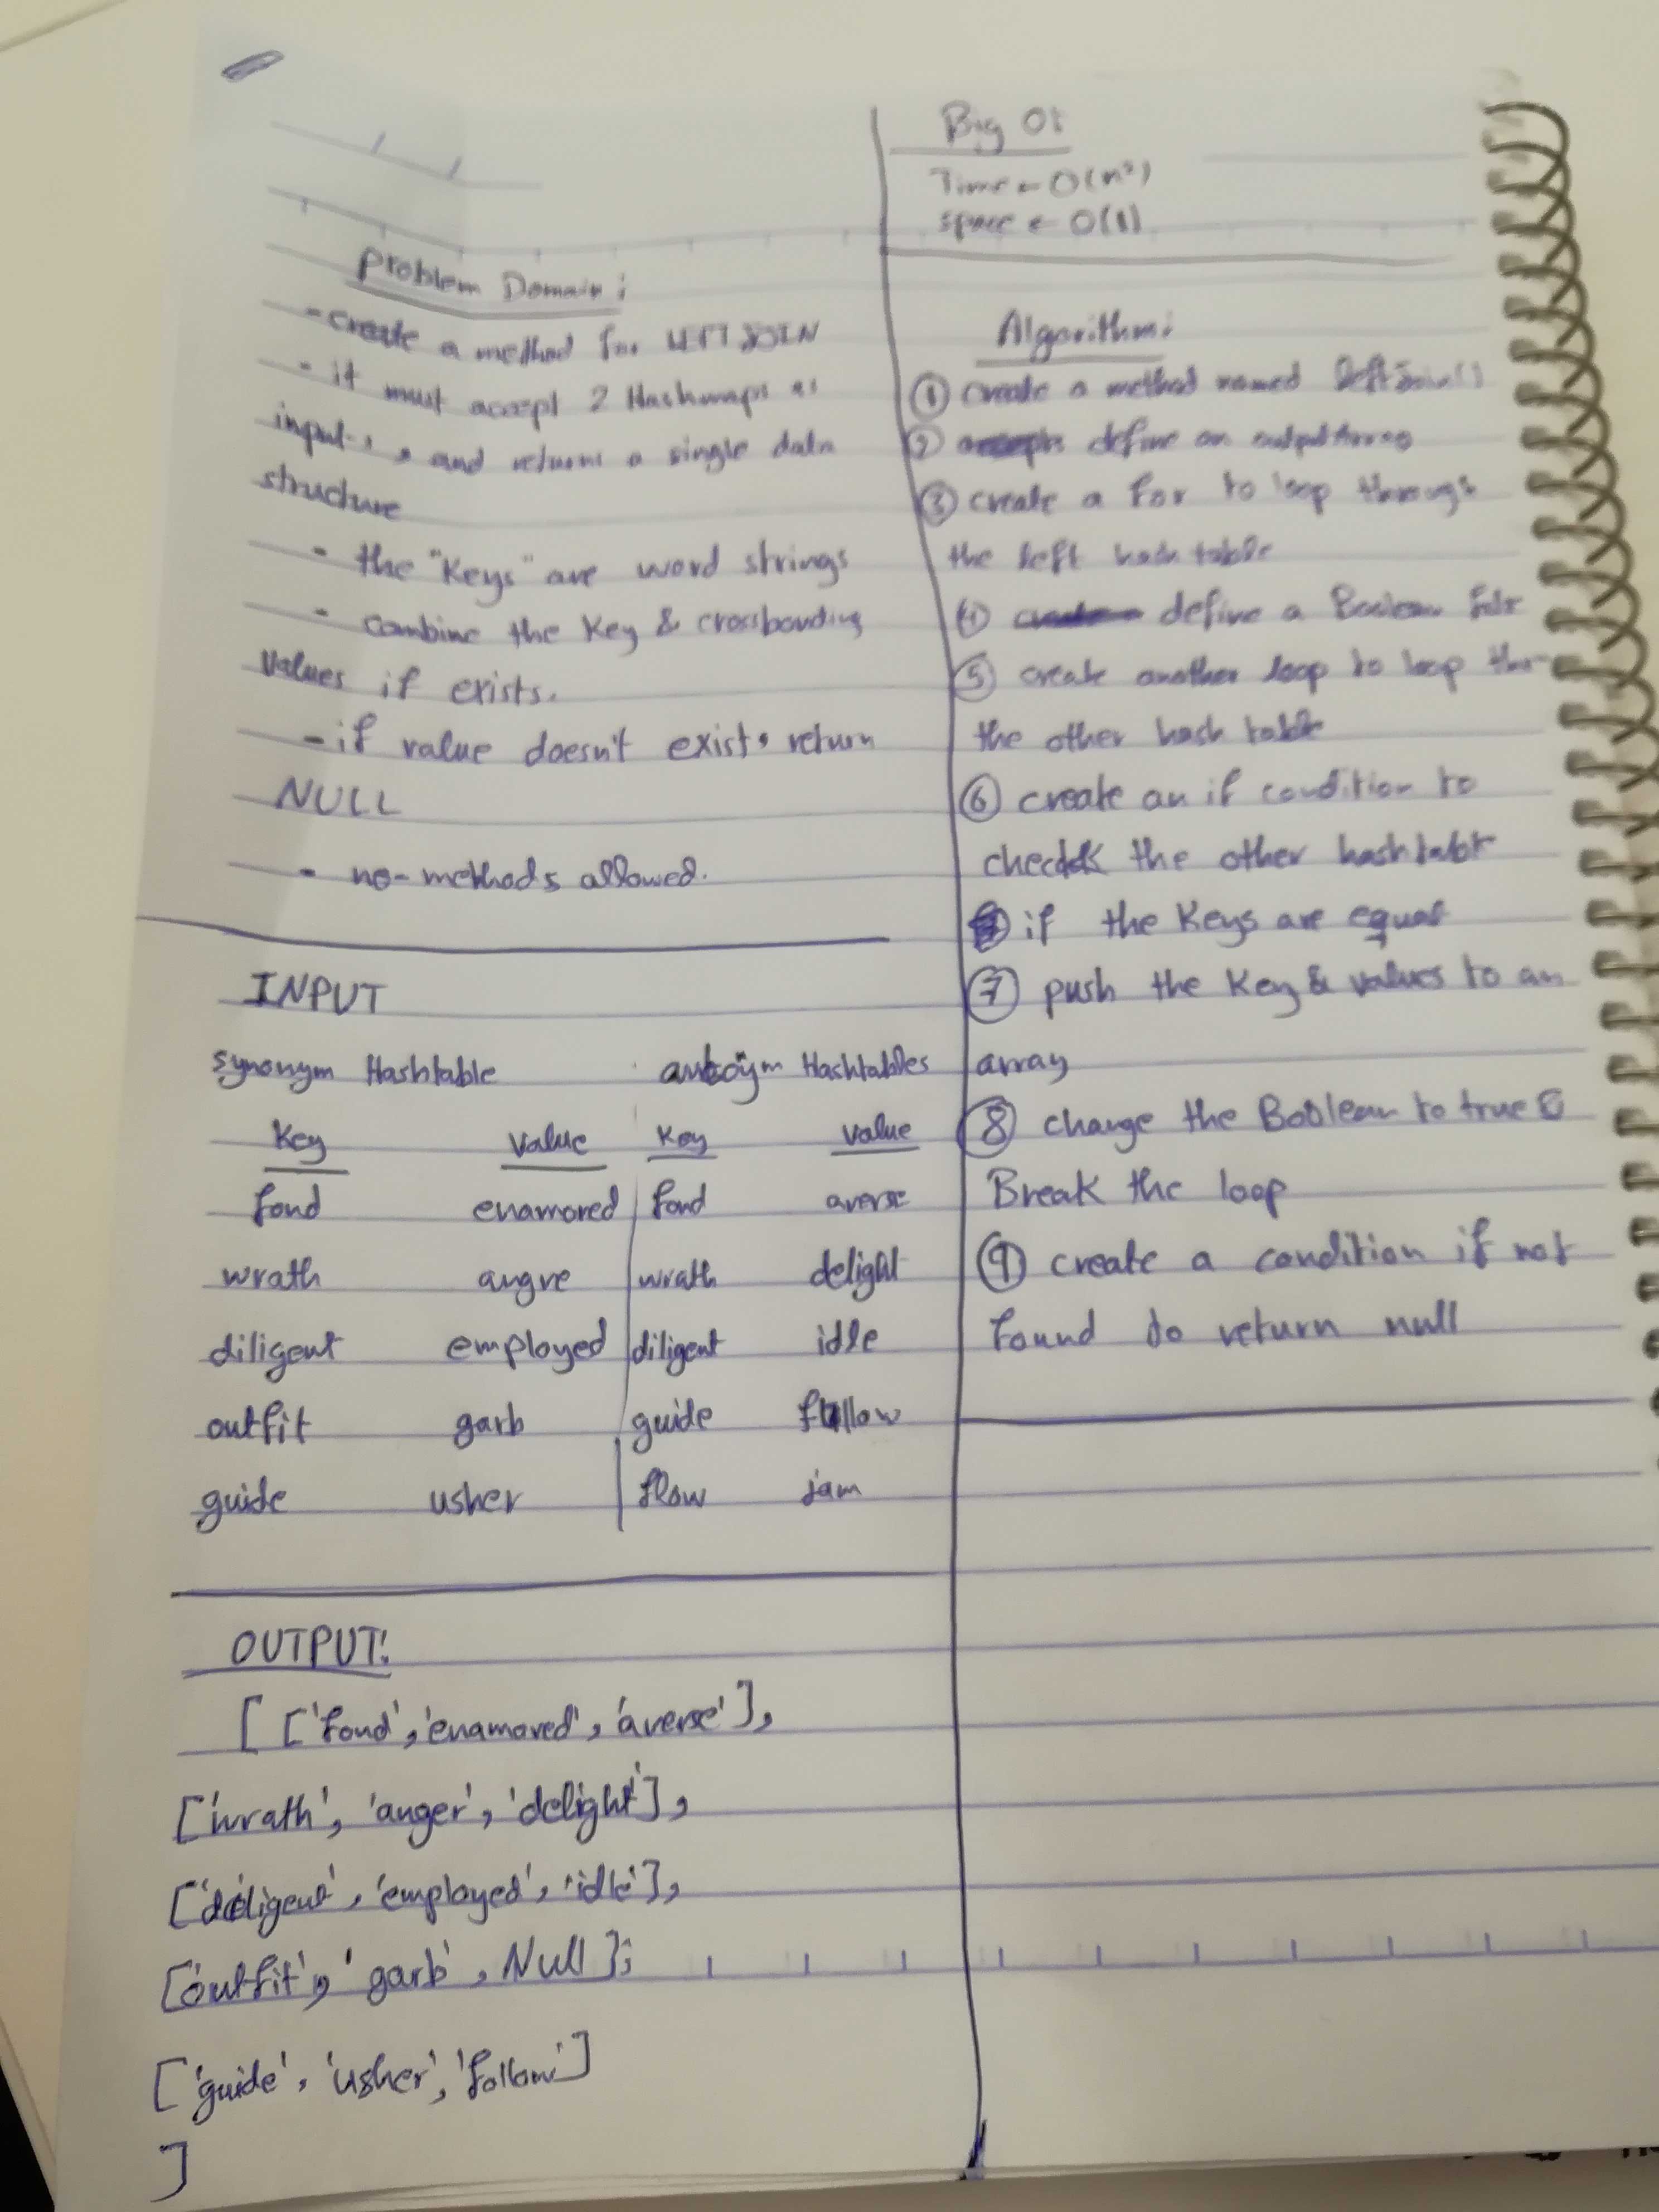 Problem Domain:
- create a method for LEFT JOIN
- it must accept 2 Hashmaps as
input, and returns a single data
structure
- the "Keys" are word strings
- combine the Key & crossbonding
values if exists.
- if value doesn't exist, return
NULL
- no-methods allowed.
INPUT
synonym Hashtable Hashtables
Key Value Key Value
fond enamored fond averse
wrath angre wrath delight
diligent employed diligent idle
outfit garb guide follow
guide usher flow jam
OUTPUT:
[ ['fond', 'enamored', 'averse'],
['wrath', 'anger', 'delight'],
['diligent', 'employed', 'idle'],
['outfit', 'garb', Null];
['guide', 'usher', 'follow']
]
Big O:
Time ← O(n²)
space ← O(1)
Algorithm:
① create a method named leftJoin()
② define an output
③ create a For to loop through
the left hash table
④ define a Boolean
⑤ create another loop to loop
the other hash table
⑥ create an if condition to
the other hashtable
if the Keys are equal
⑦ push the Key & values to an
array
⑧ change the Boolean to true &
Break the loop
⑨ create a condition if not
found to return null